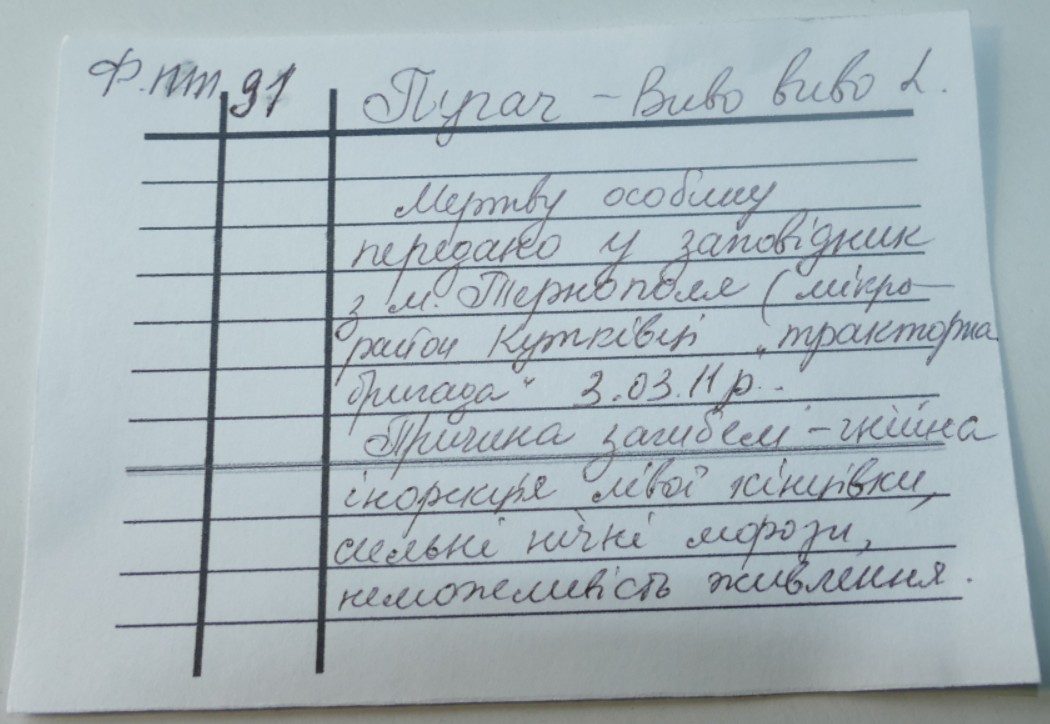 Ф.пт 91 Пугач - Bubo bubo L.
Мертву особину
передано у заповідник
з м. Тернополя (мікро-
район Кутківці „тракторна
бригада" 3.03.11 р.
Причина загибелі - гнійна
інфекція лівої кінцівки,
сильні нічні морози,
неможливість живлення.